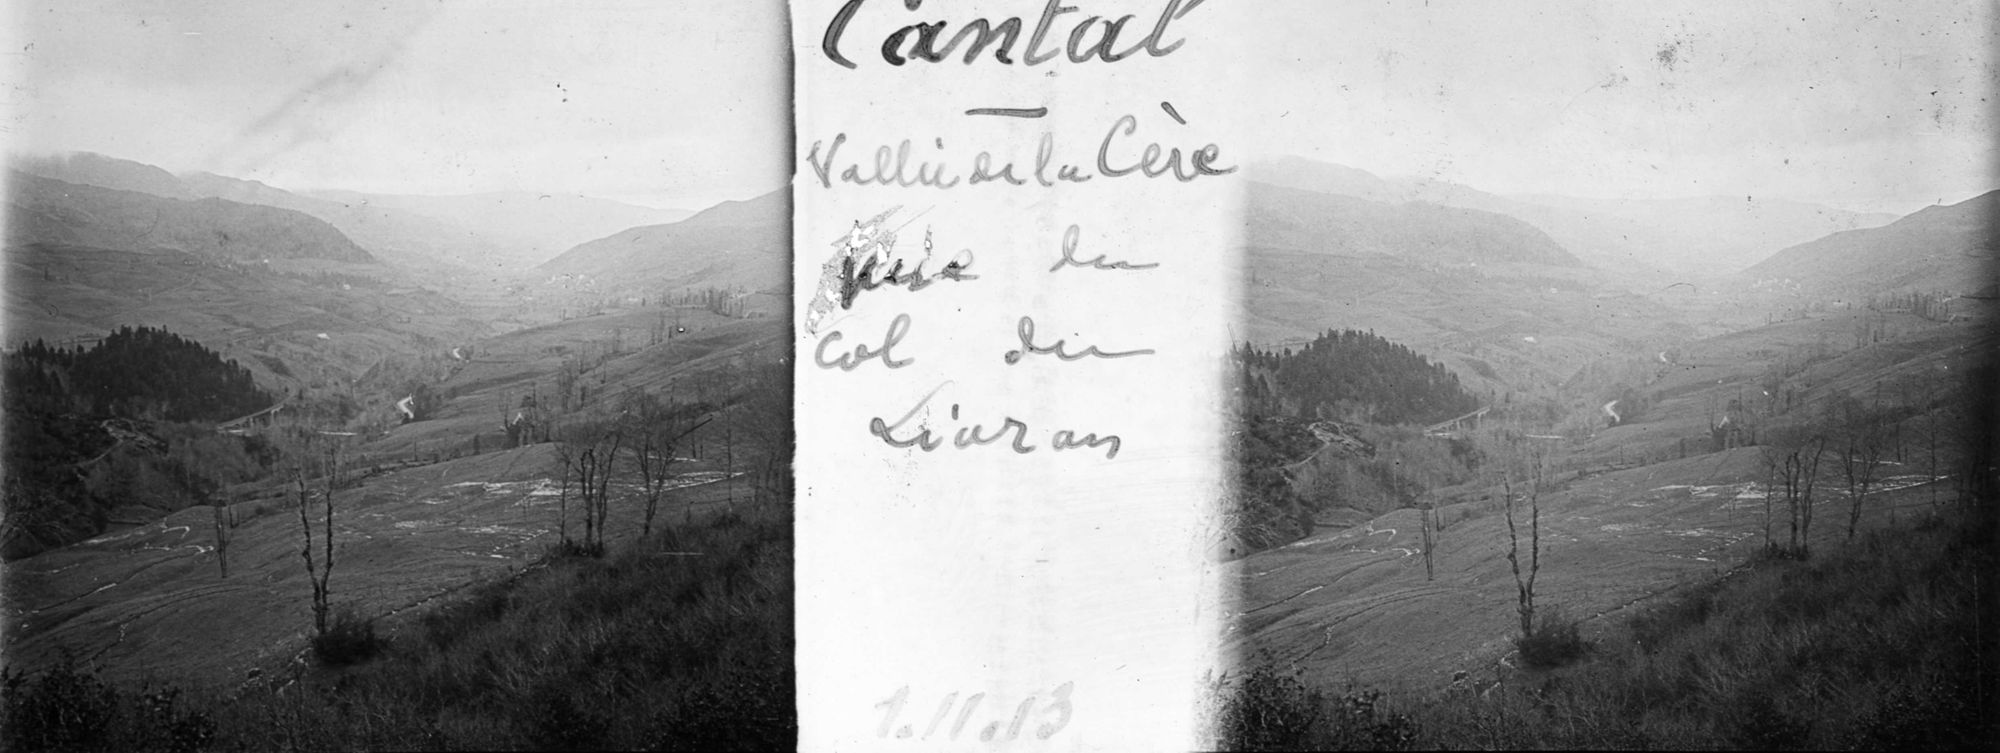 Cantal
Vallée de la Cère
vue du
col du
Lioran
1.11.13